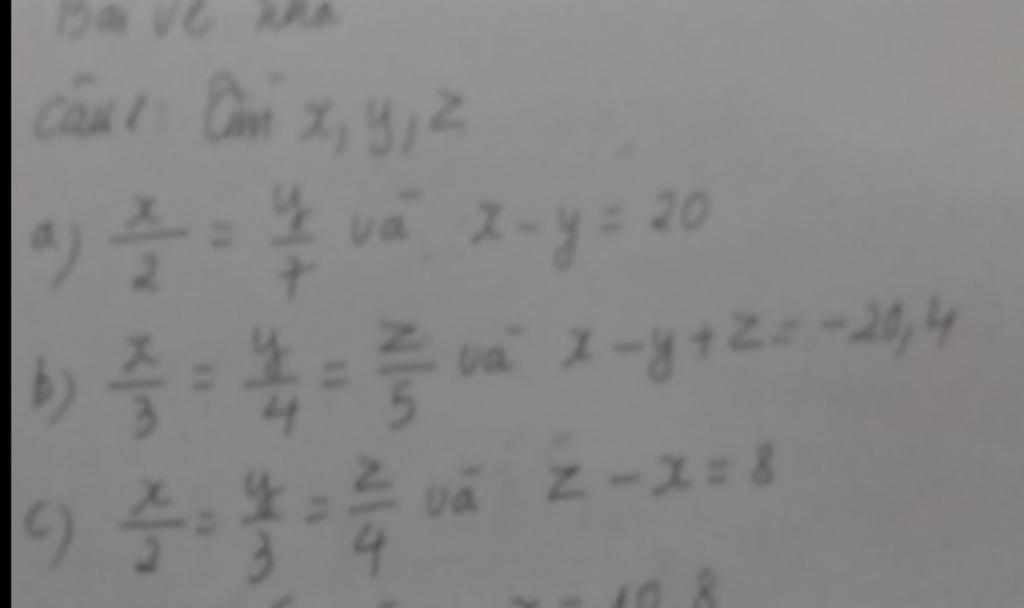 Bài về nhà
Câu 1: Tìm x, y, z
a) x/2 = y/7 và x - y = 20
b) x/3 = y/4 = z/5 và x - y + z = -20,4
c) x/2 = y/3 = z/4 và z - x = 8